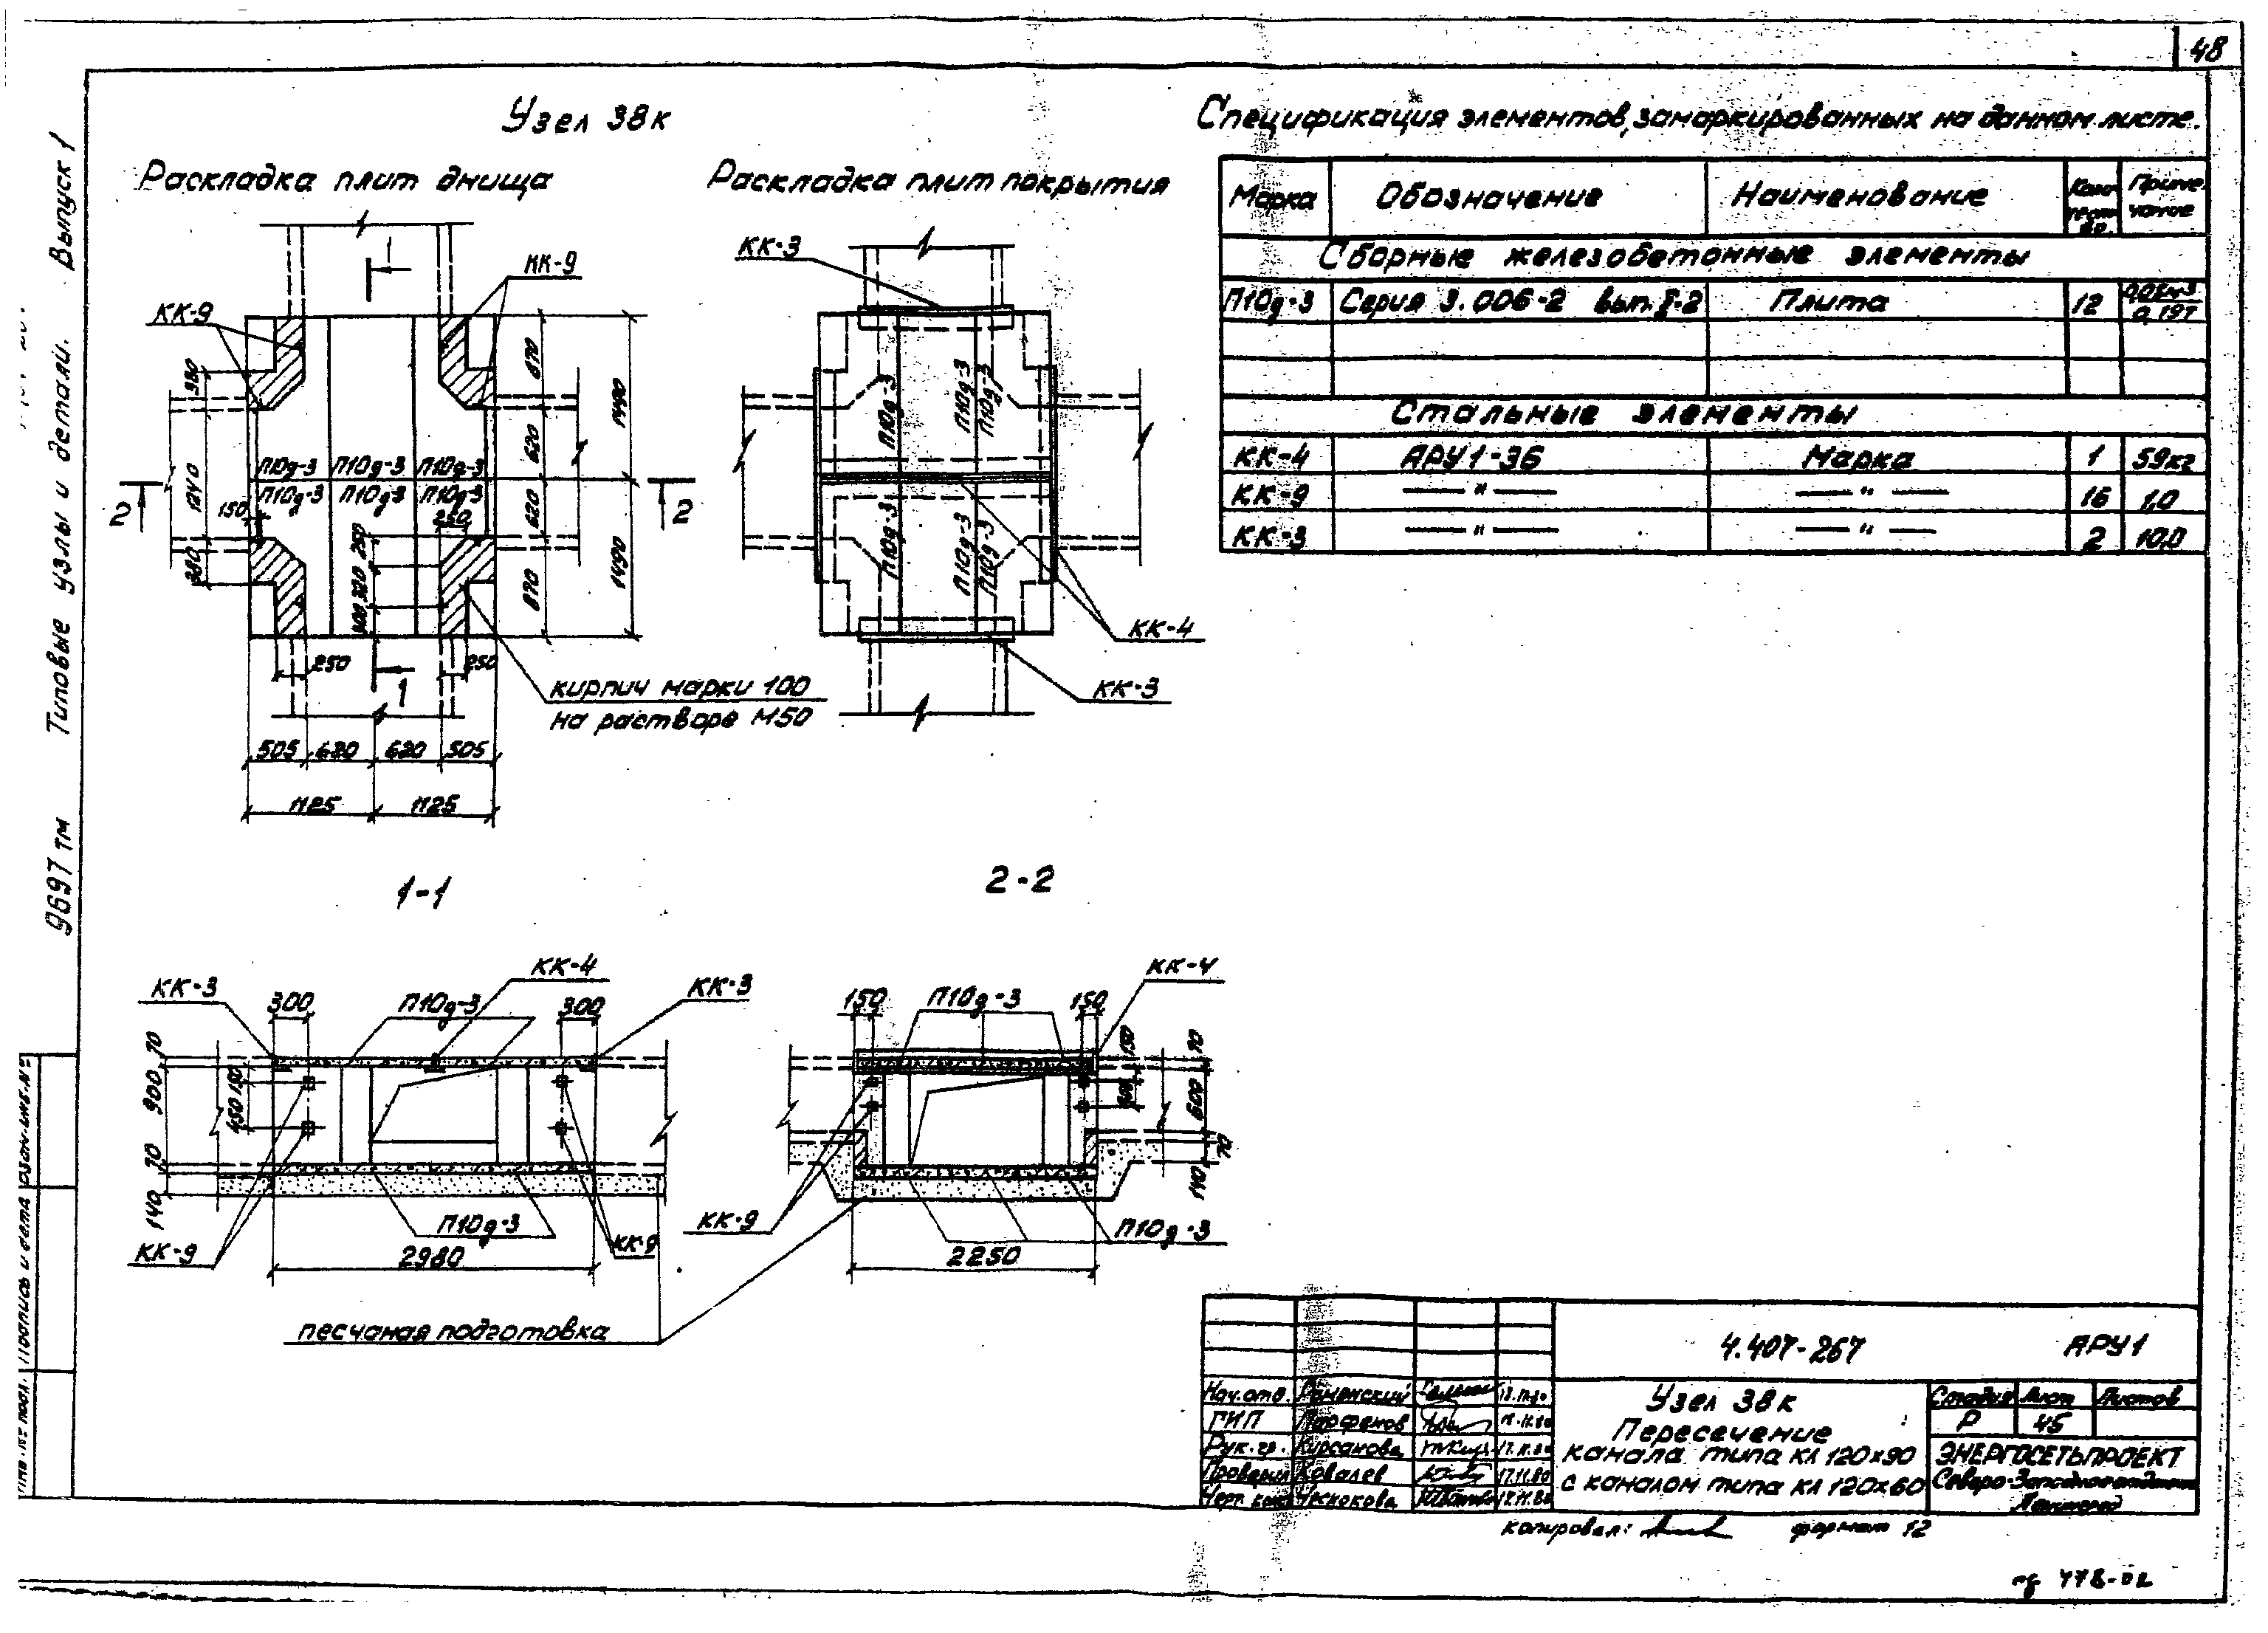 48
Узел 38к
Раскладка плит днища
Раскладка плит покрытия
КК-9
КК-9
1
380
1240
380
150
П10д-3 П10д-3 П10д-3
П10д-3 П10д-3 П10д-3
250
250
300
300
870
620
620
870
1490
1490
2
2
250
250
1
кирпич марки 100
на растворе М50
505 620 620 505
1125 1125
КК-3
П10д-3
П10д-3
П10д-3
П10д-3
П10д-3
П10д-3
КК-4
КК-3
Спецификация элементов, замаркированных на данном листе.
Марка Обозначение Наименование Приме-
чание
Сборные железобетонные элементы
П10д-3 Серия 3.006-2 вып. II-2 Плита 12
0,19т
Стальные элементы
КК-4 АРУ1-36 Марка 1 59кг
КК-9 —"— —"— 16 1,0
КК-3 —"— —"— 2 10,0
1-1
КК-3 300 П10д-3 КК-4 300 КК-3
70
900
70
140
150
450
КК-9 П10д-3 КК-9
2980
песчаная подготовка
2-2
150 П10д-3 150 КК-4
150
300
70
600
70
140
КК-9 П10д-3
2250
4.407-267 АРУ1
Узел 38к
Пересечение
канала типа КЛ 120х90
с каналом типа КЛ 120х60
Стадия Лист Листов
Р 45
ЭНЕРГОСЕТЬПРОЕКТ
Северо-Западное отделение
Ленинград
Нач.отд. Роменский
ГИП Парфенов
Рук. гр. Кирсанова 17.11.80
Проверил Ковалев 17.11.80
Ческокова 17.11.80
копировал: формат 12
778-02
9697 тм Типовые узлы и детали. Выпуск 1
Инв.№ подл. Подпись и дата Взам.инв.№